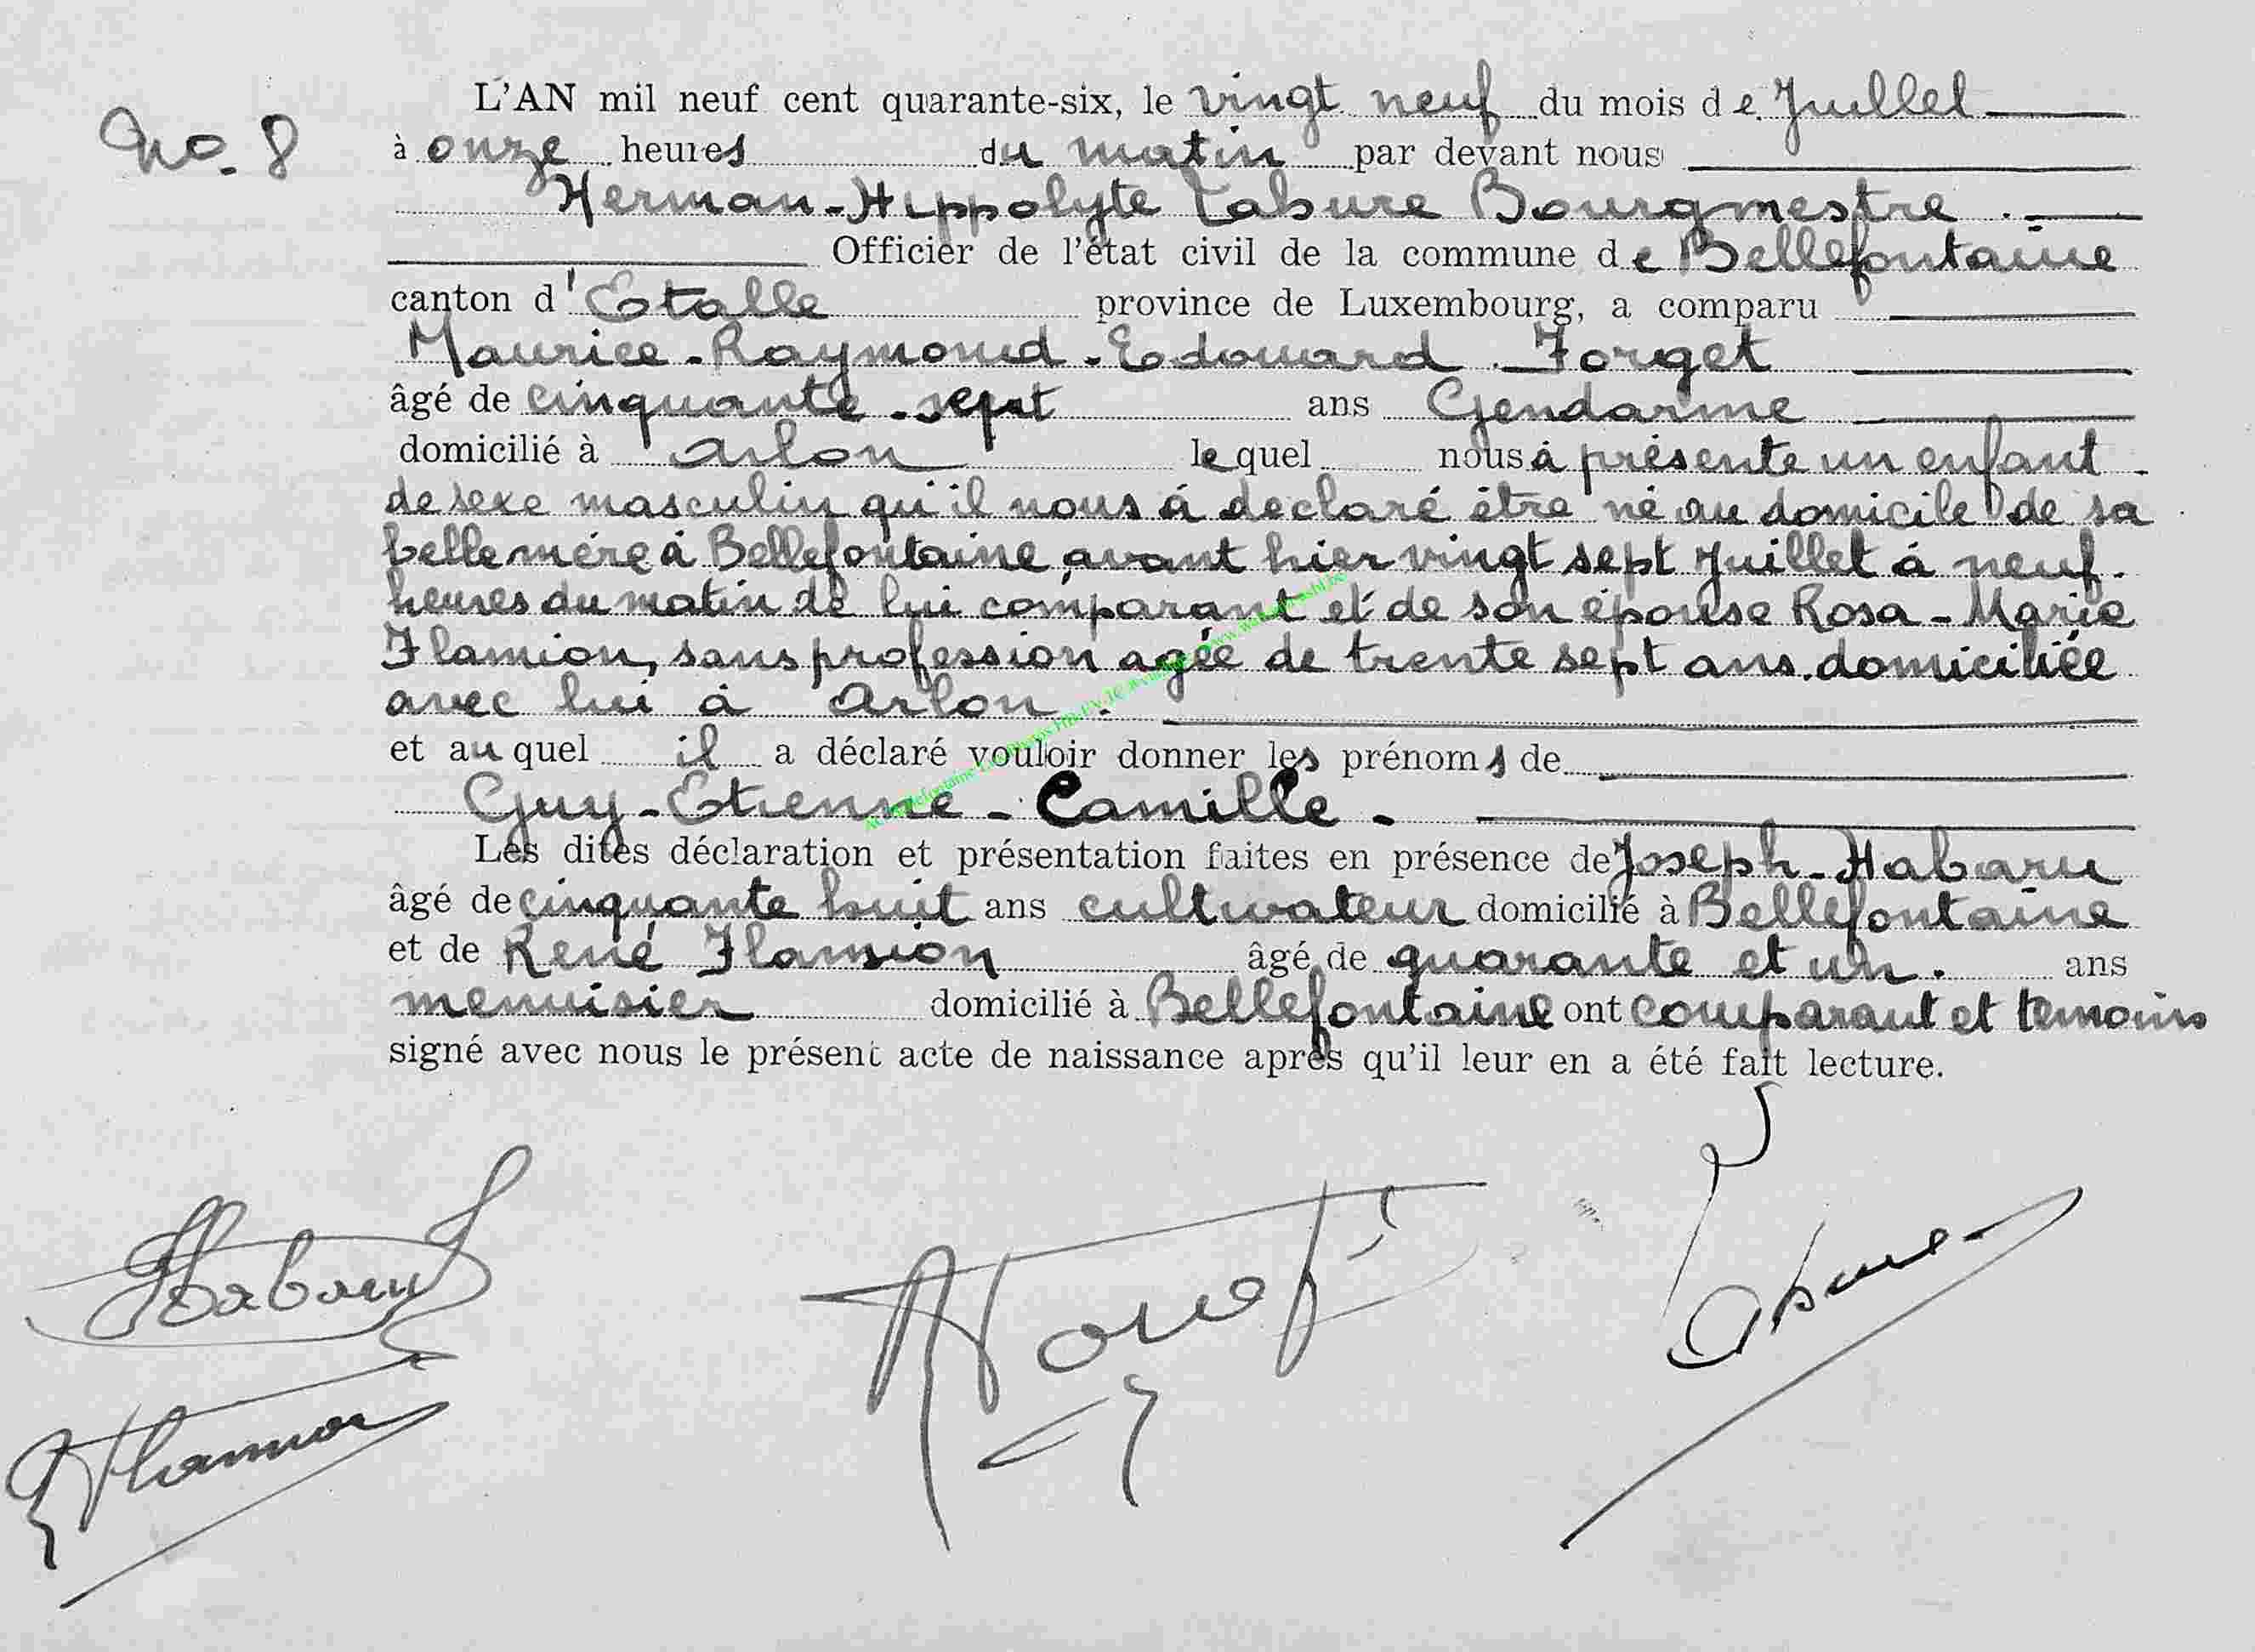 No. 8
L'AN mil neuf cent quarante-six, le vingt neuf du mois de Juillet
à onze heures du matin par devant nous
Herman-Hippolyte Labure Bourgmestre.
Officier de l'état civil de la commune de Bellefontaine
canton d'Etalle province de Luxembourg, a comparu
Maurice-Raymond-Edouard Forget
âgé de cinquante-sept ans Gendarme
domicilié à Arlon lequel nous à présente un enfant
de sexe masculin qu'il nous à declaré être né au domicile de sa
belle mère à Bellefontaine, avant hier vingt sept Juillet à neuf
heures du matin de lui comparant et de son épouse Rosa-Marie
Flamion, sans profession agée de trente sept ans domiciliée
avec lui à Arlon.
et auquel il a déclaré vouloir donner les prénoms de
Guy-Etienne-Camille-
Les dites déclaration et présentation faites en présence de Joseph-Habaru
âgé de cinquante huit ans cultivateur domicilié à Bellefontaine
et de René Flamion âgé de quarante et un. ans
menuisier domicilié à Bellefontaine ont comparant et temoins
signé avec nous le présent acte de naissance après qu'il leur en a été fait lecture.
Habaru
Forget
Labure
Flamion